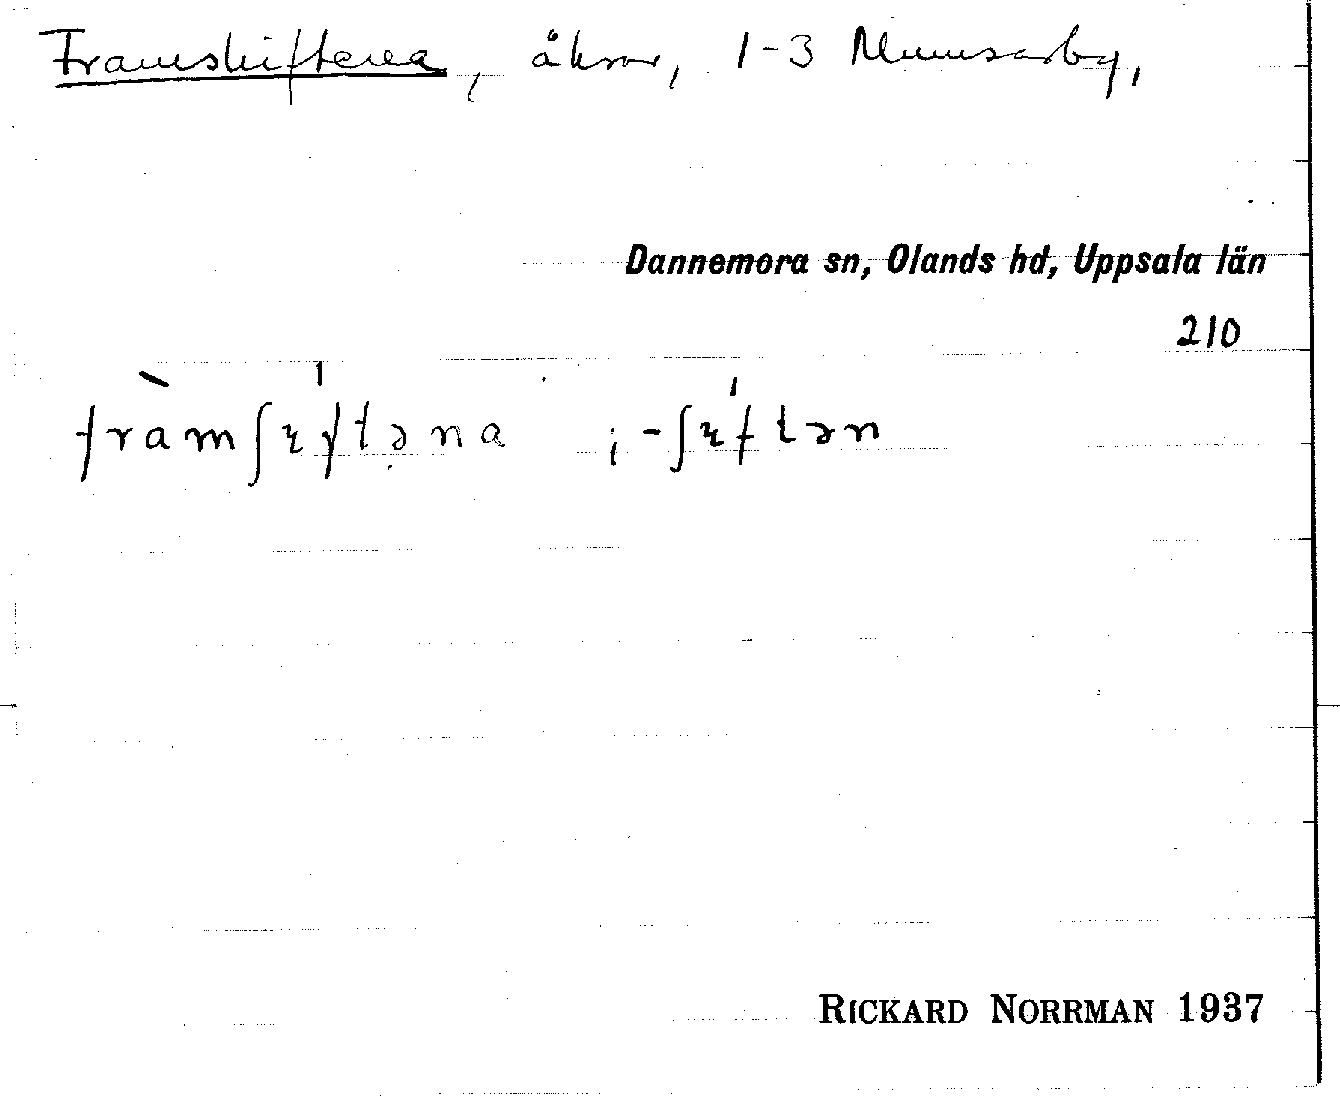 Framskiftena, åkrar, 1-3 Mumsarby,
Dannemora sn, Olands hd, Uppsala län
210
fràmʃɩftəna ; -ʃɩftən
RICKARD NORRMAN 1937